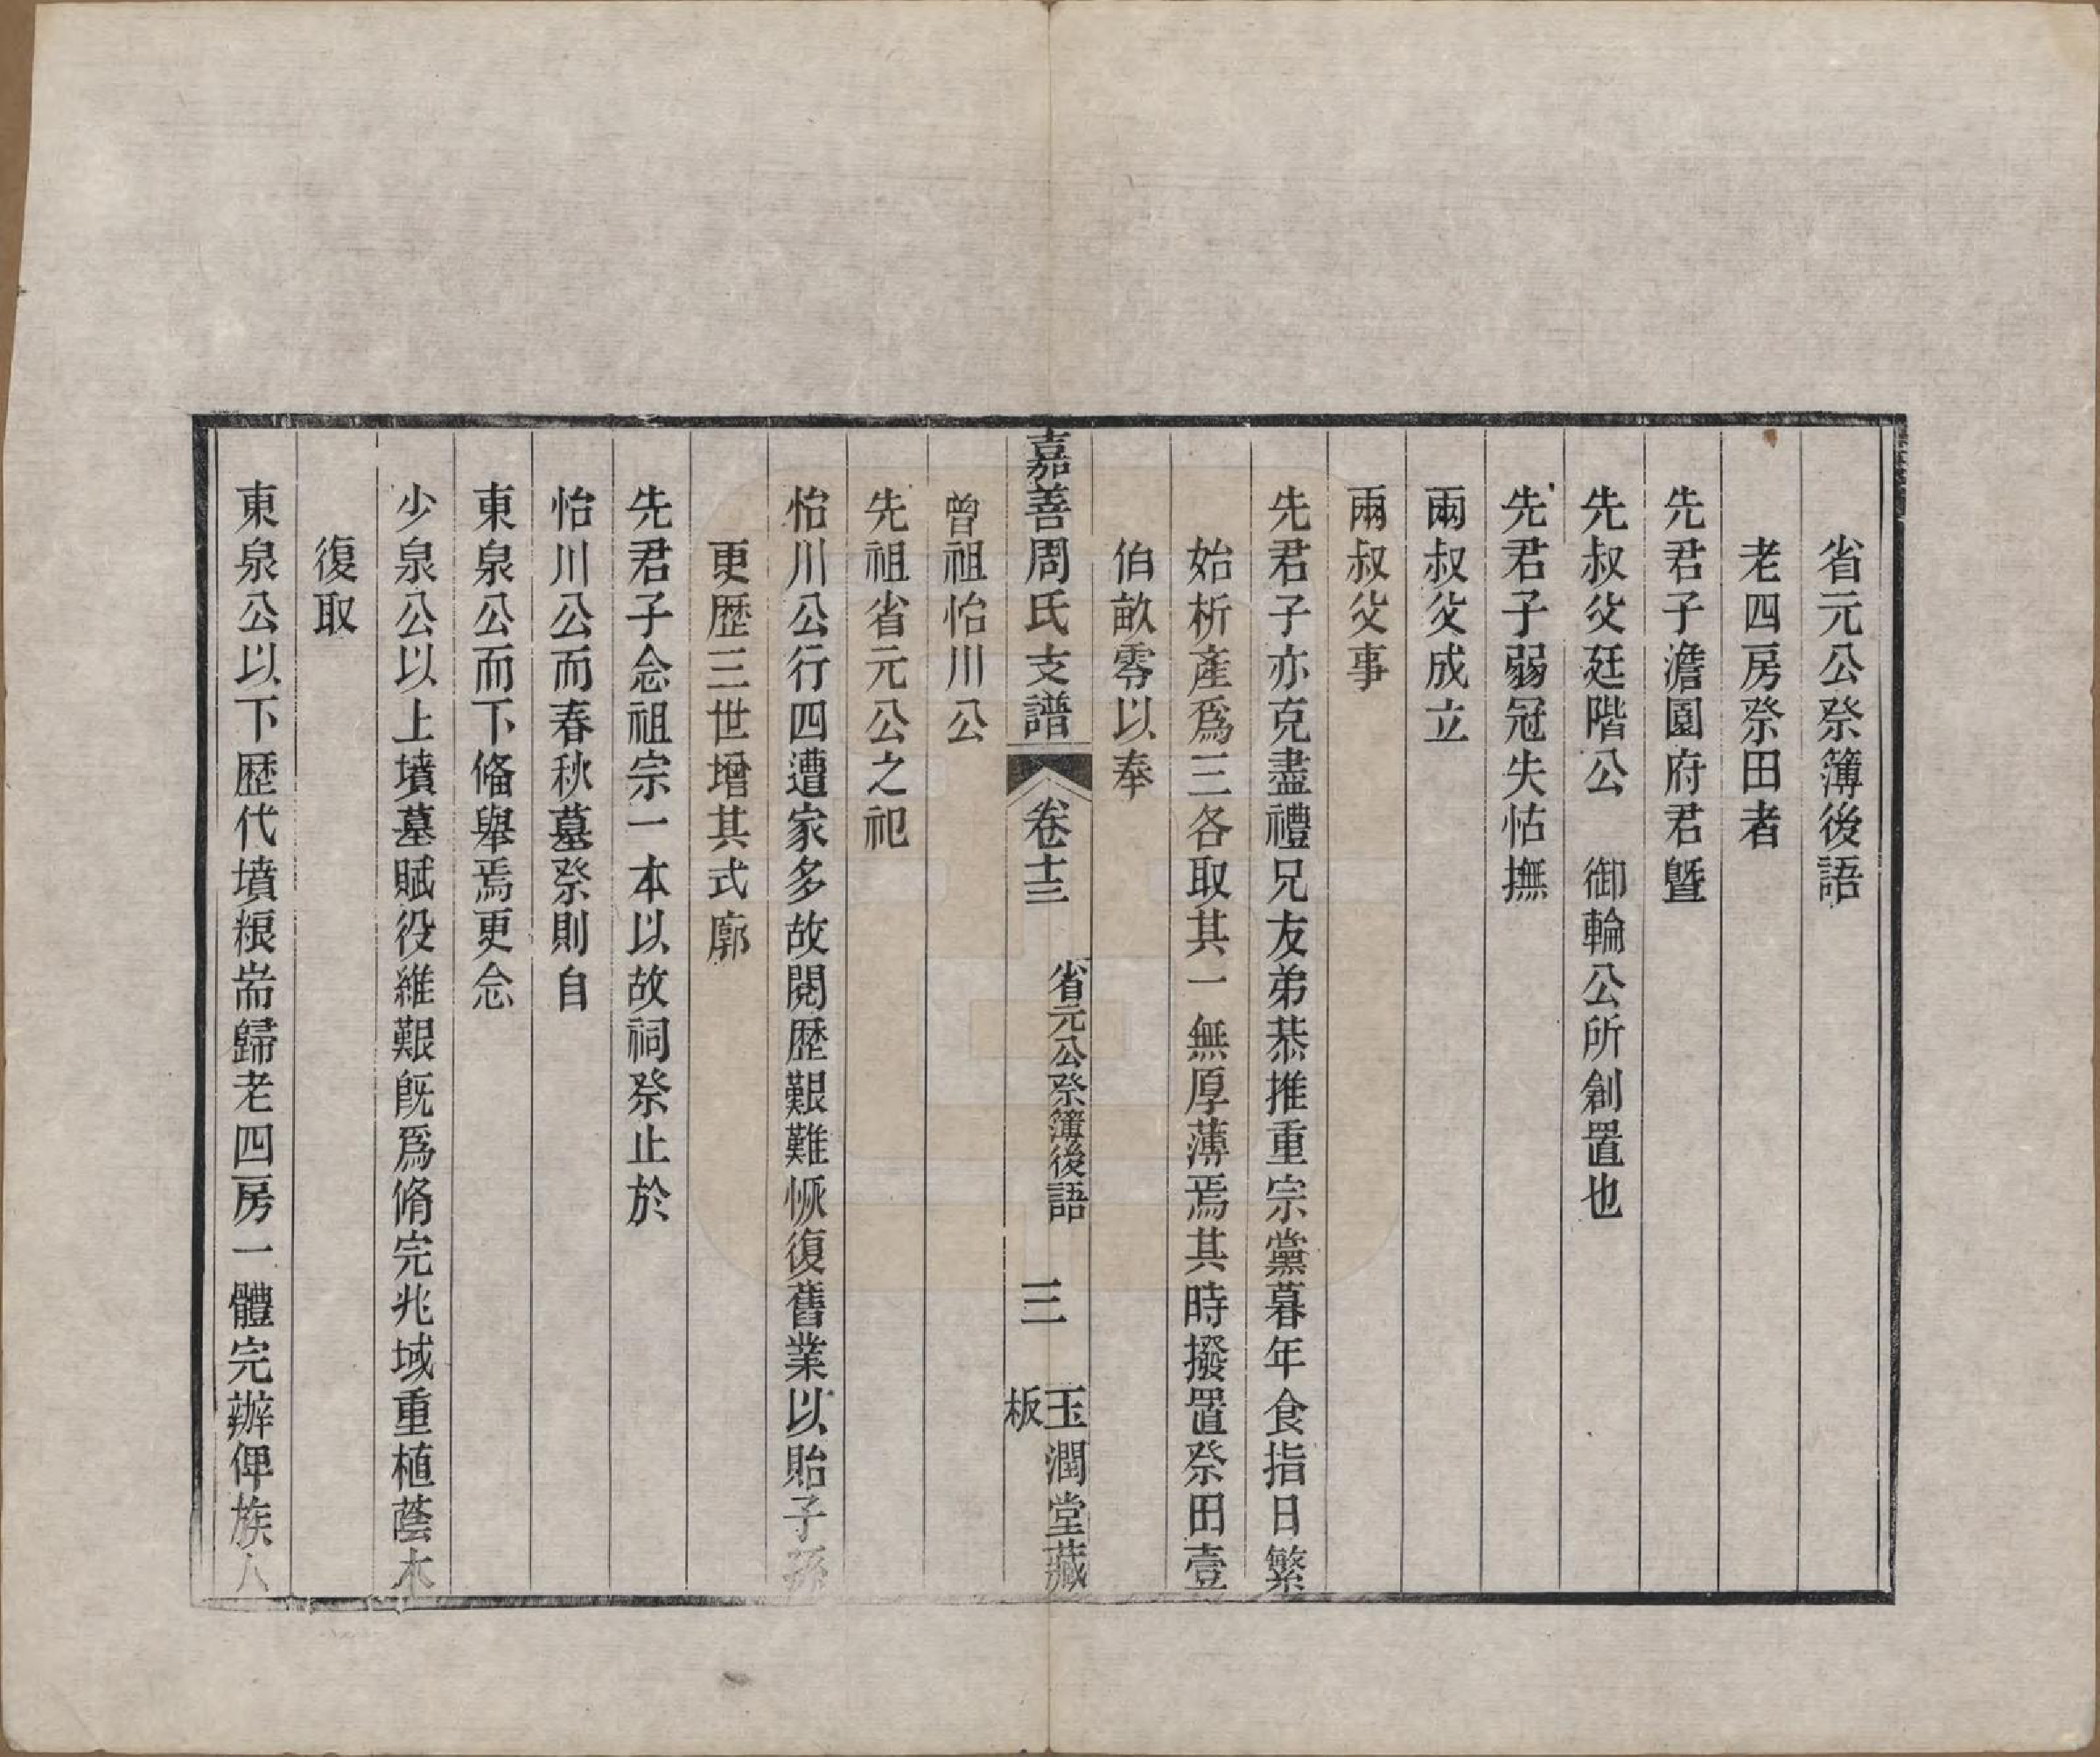 省元公祭簿後語
老四房祭田者
先君子澹園府君曁
先叔父廷階公　御輪公所創置也
先君子弱冠失怙撫
兩叔父成立
兩叔父事
先君子亦克盡禮兄友弟恭推重宗黨暮年食指日繁
始析產爲三各取其一無厚薄焉其時撥置祭田壹
伯畝零以奉
嘉善周氏支譜　卷十三　省元公祭簿後語　三　玉潤堂藏板
曾祖怡川公
先祖省元公之祀
怡川公行四遭家多故閱歷艱難恢復舊業以貽子孫
更歷三世增其式廓
先君子念祖宗一本以故祠祭止於
怡川公而春秋墓祭則自
東泉公而下俻舉焉更念
少泉公以上墳墓賦役維艱旣爲脩完兆域重植蔭木
復取
東泉公以下歷代墳粮耑歸老四房一體完辦俾族人